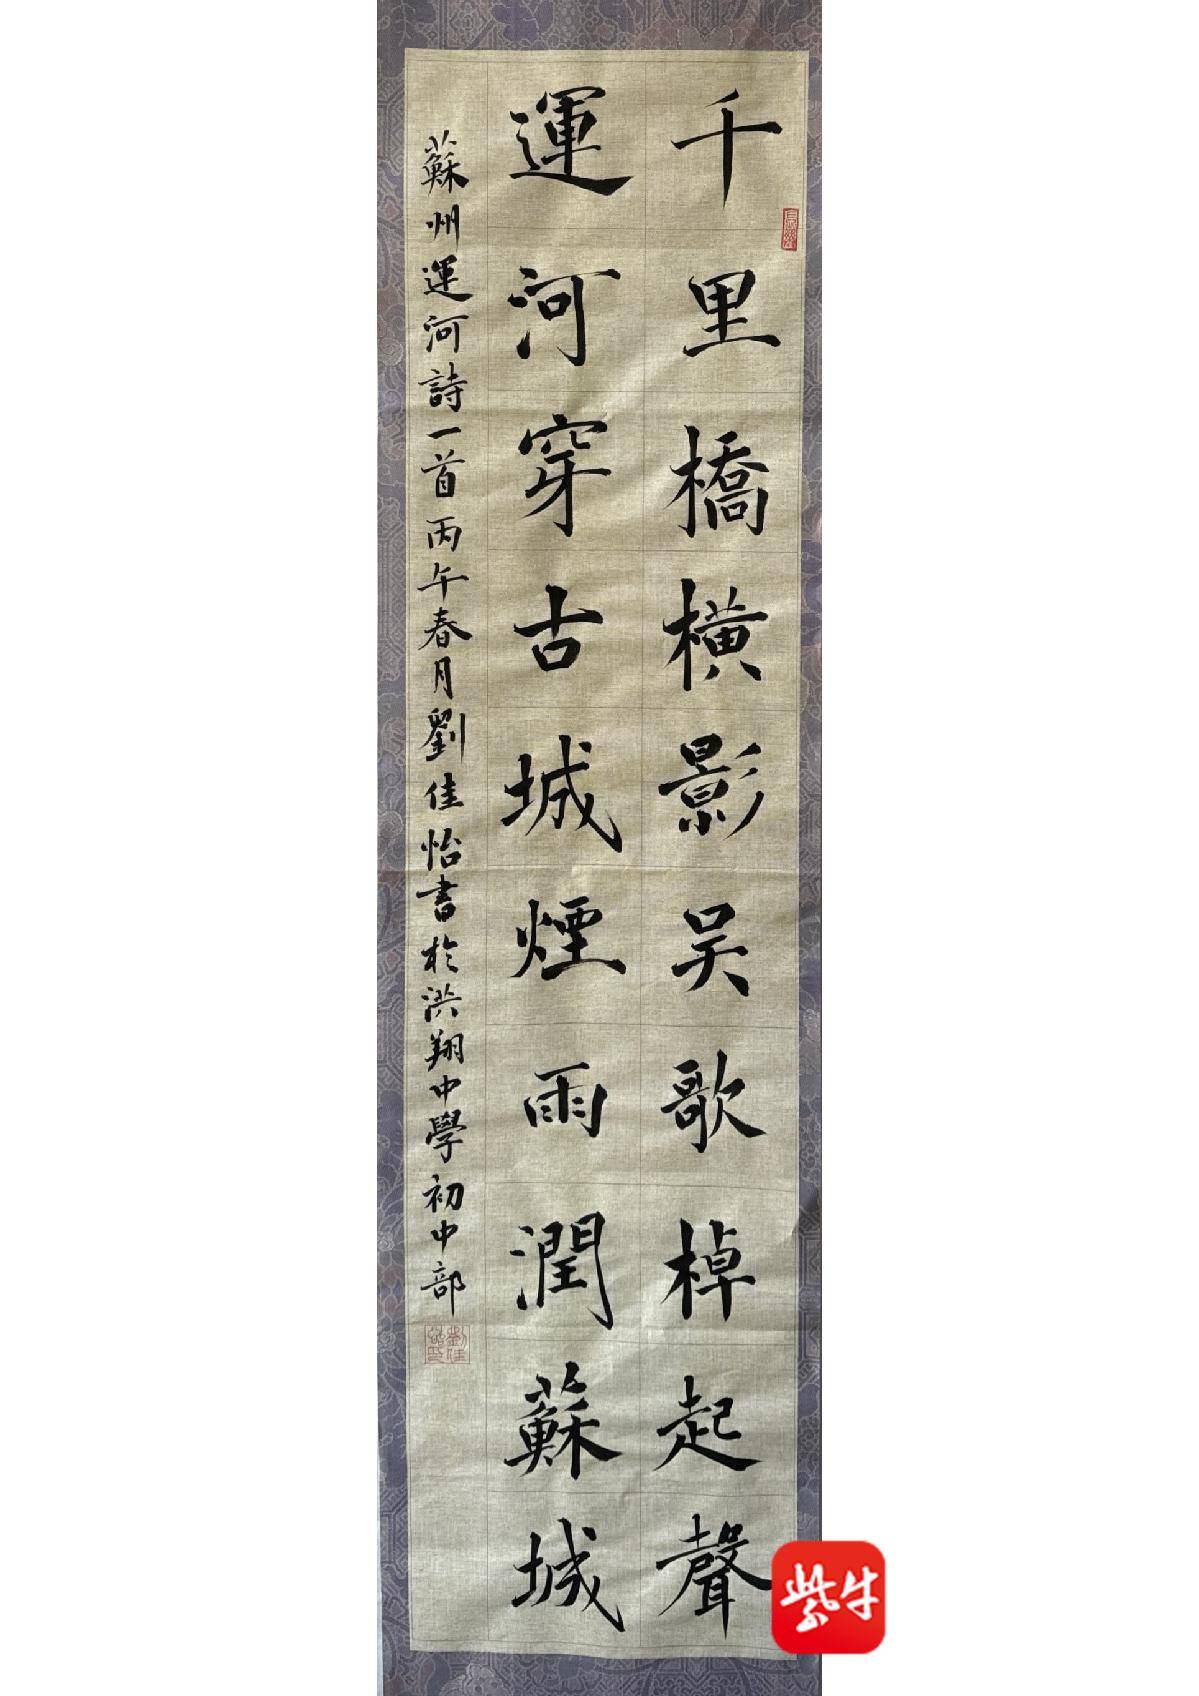 千里橋橫影吴歌棹起聲
運河穿古城煙雨潤蘇城
蘇州運河詩一首丙午春月劉佳怡書於洪翔中學初中部
劉佳怡印
紫牛